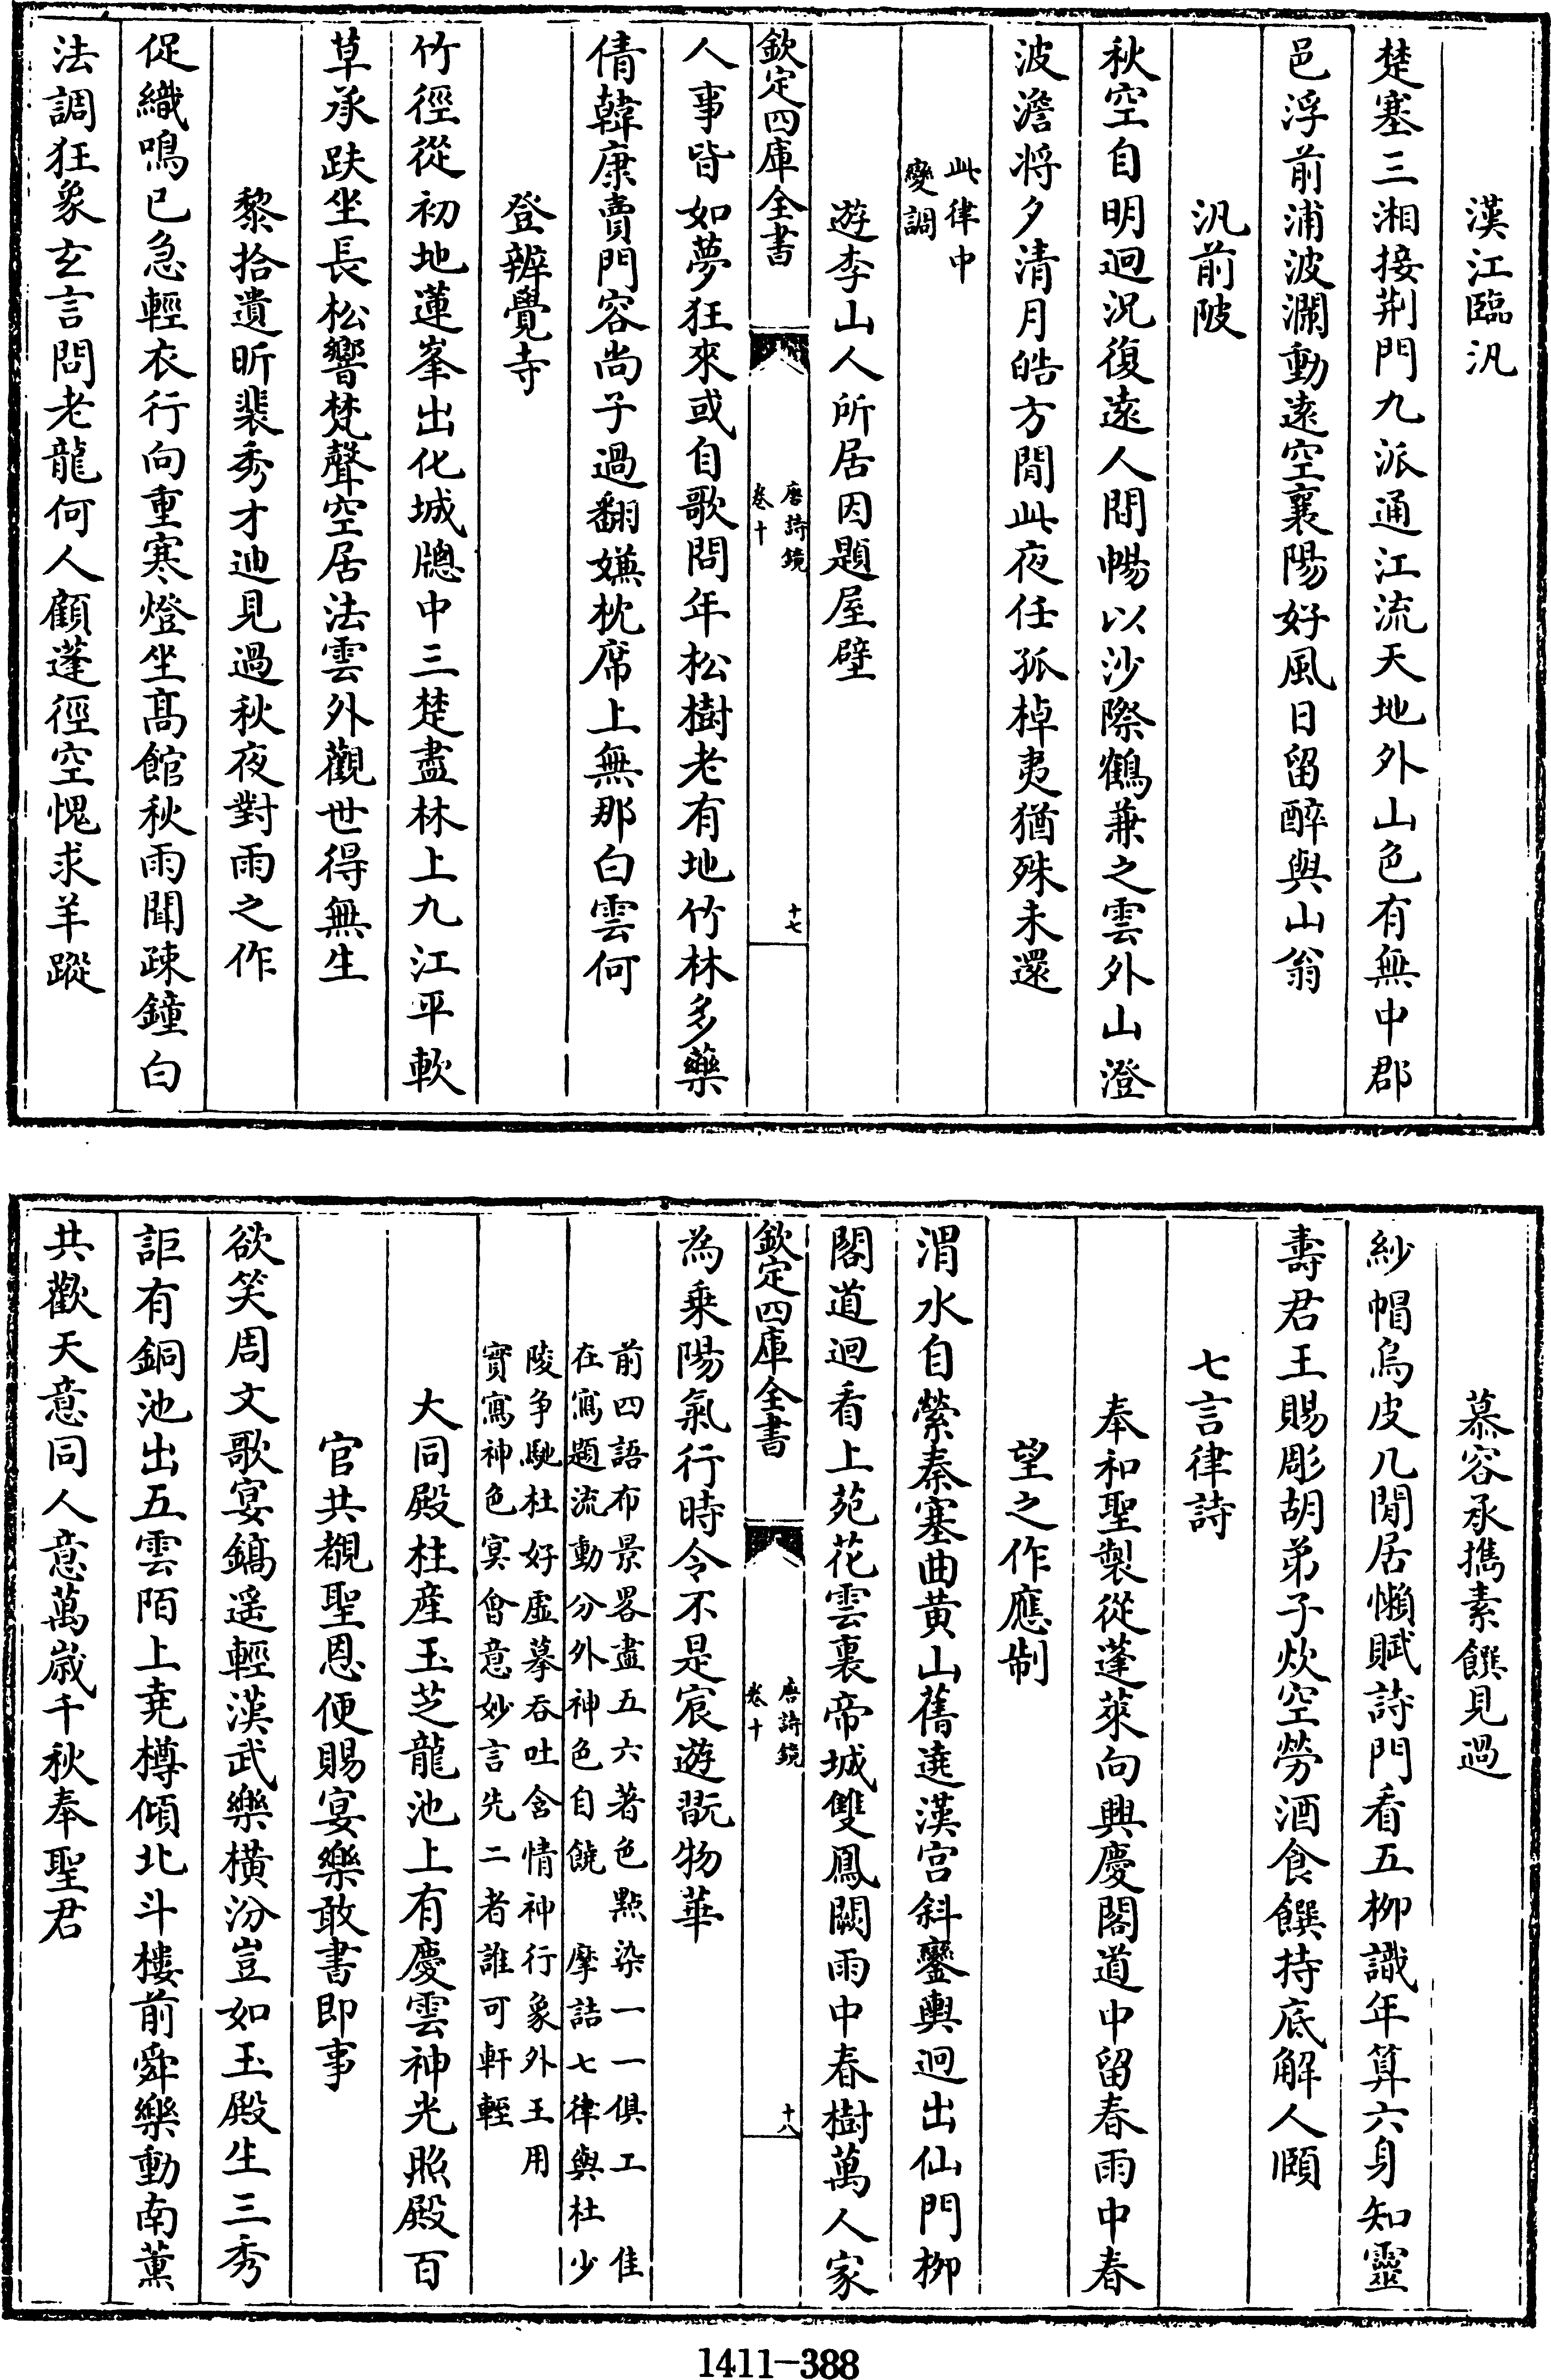 漢江臨汎
楚塞三湘接荆門九派通江流天地外山色有無中郡
邑浮前浦波瀾動遠空襄陽好風日留醉與山翁
汎前陂
秋空自明迥況復遠人間暢以沙際鶴兼之雲外山澄
波澹将夕清月皓方閒此夜任孤棹夷猶殊未還
此律中
變調
遊李山人所居因題屋壁
欽定四庫全書
唐詩鏡
卷十
十七
人事皆如夢狂來或自歌問年松樹老有地竹林多藥
倩韓康賣門容尚子過翻嫌枕席上無那白雲何
登辨覺寺
竹徑從初地蓮峯出化城牕中三楚盡林上九江平軟
草承趺坐長松響梵聲空居法雲外觀世得無生
黎拾遺昕裴秀才迪見過秋夜對雨之作
促織鳴已急輕衣行向重寒燈坐髙館秋雨聞疎鐘白
法調狂象玄言問老龍何人顧蓬徑空愧求羊蹤
慕容承擕素饌見過
紗帽烏皮几閒居懶賦詩門看五柳識年算六身知靈
壽君王賜彫胡弟子炊空勞酒食饌持底解人頥
七言律詩
奉和聖製從蓬萊向興慶閣道中留春雨中春
望之作應制
渭水自縈秦塞曲黄山舊遶漢宫斜鑾輿迥出仙門柳
閣道迴看上苑花雲裏帝城雙鳳闕雨中春樹萬人家
欽定四庫全書
唐詩鏡
卷十
十八
為乗陽氣行時令不是宸遊翫物華
前四語布景畧盡五六著色點染一一俱工 佳
在寫題流動分外神色自饒 摩詰七律與杜少
陵争馳杜好虚摹吞吐含情神行象外王用
實寫神色冥會意妙言先二者誰可軒輊
大同殿柱産玉芝龍池上有慶雲神光照殿百
官共覩聖恩便賜宴樂敢書即事
欲笑周文歌宴鎬遥輕漢武樂横汾豈如玉殿生三秀
詎有銅池出五雲陌上堯樽傾北斗樓前舜樂動南薰
共歡天意同人意萬歳千秋奉聖君
1411-388